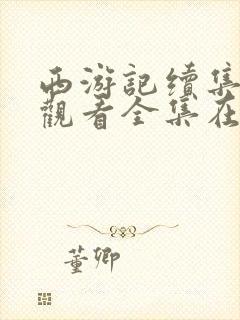 西游記續集
觀看全集在
董卿